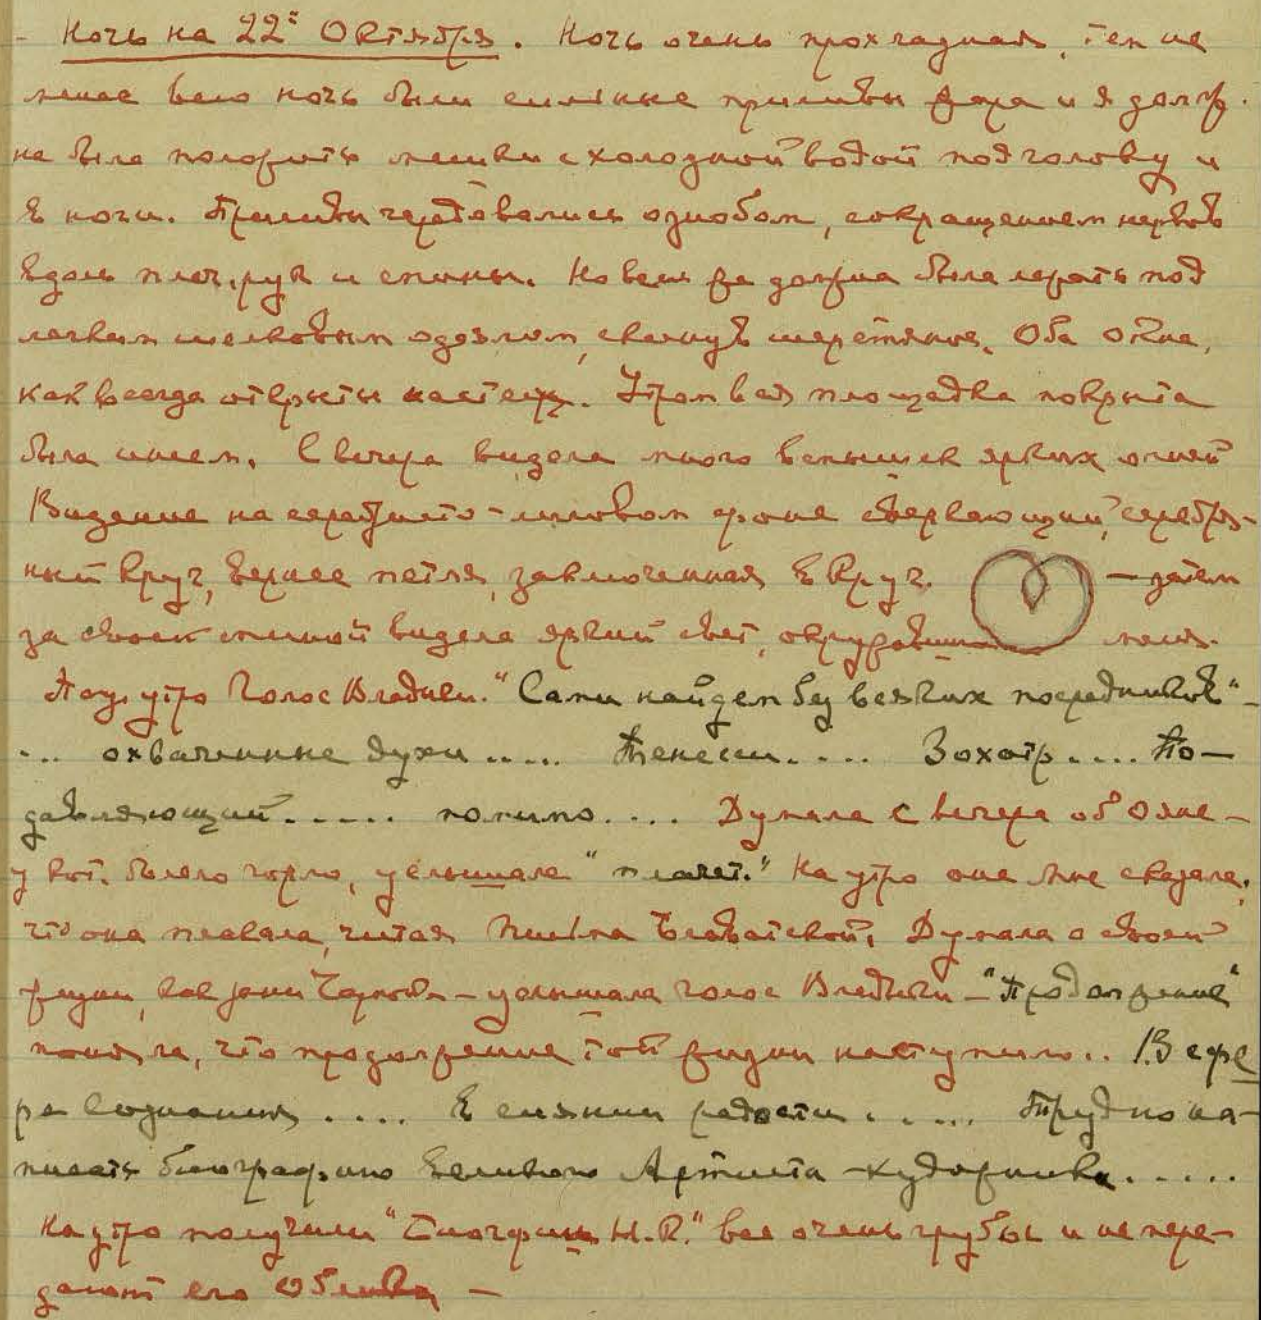 - Ночь на 22ое Октября. Ночь очень прохладная, тем не
менее всю ночь были сильные приливы жара и я долж-
на была положить мешки с холодной водой под голову и
в ноги. Приливы чередовались ознобом, сокращением нервов
вдоль плеч, рук и спины. Но всё же должна была лежать под
легким шелковым одеялом, скинув шерстяное. Оба окна,
как всегда открыты настежь. Утром вся площадка покрыта
была инеем. С вечера видела много вспышек ярких огней
Видение на серебристо-лиловом фоне сверкающий, серебря-
ный круг, вернее петля, заключенная в круг. — затем
за своей спиной видела яркий свет, окружавший меня.
Под утро Голос Владыки. "Сами найдем без всяких посредников" -
... охваченные духи ..... Тенесси.... Зохотр.... По-
давляющий..... помимо.... Думала с вечера об Ояне -
у кот. болело горло, услышала "плачет." На утро она мне сказала,
что она плакала, читая Письма Блаватской. Думала о своей
жизни, как жены Художника - услышала голос Владыки - "Продолжение"
поняла, что продолжение той жизни наступило.. В сфе
ре Сознания .... В сиянии радости ..... Трудно на-
писать биографию Великого Артиста - художника.....
На утро получили "Биографии Н.Р." все очень грубы и не пере-
дают его Облика -